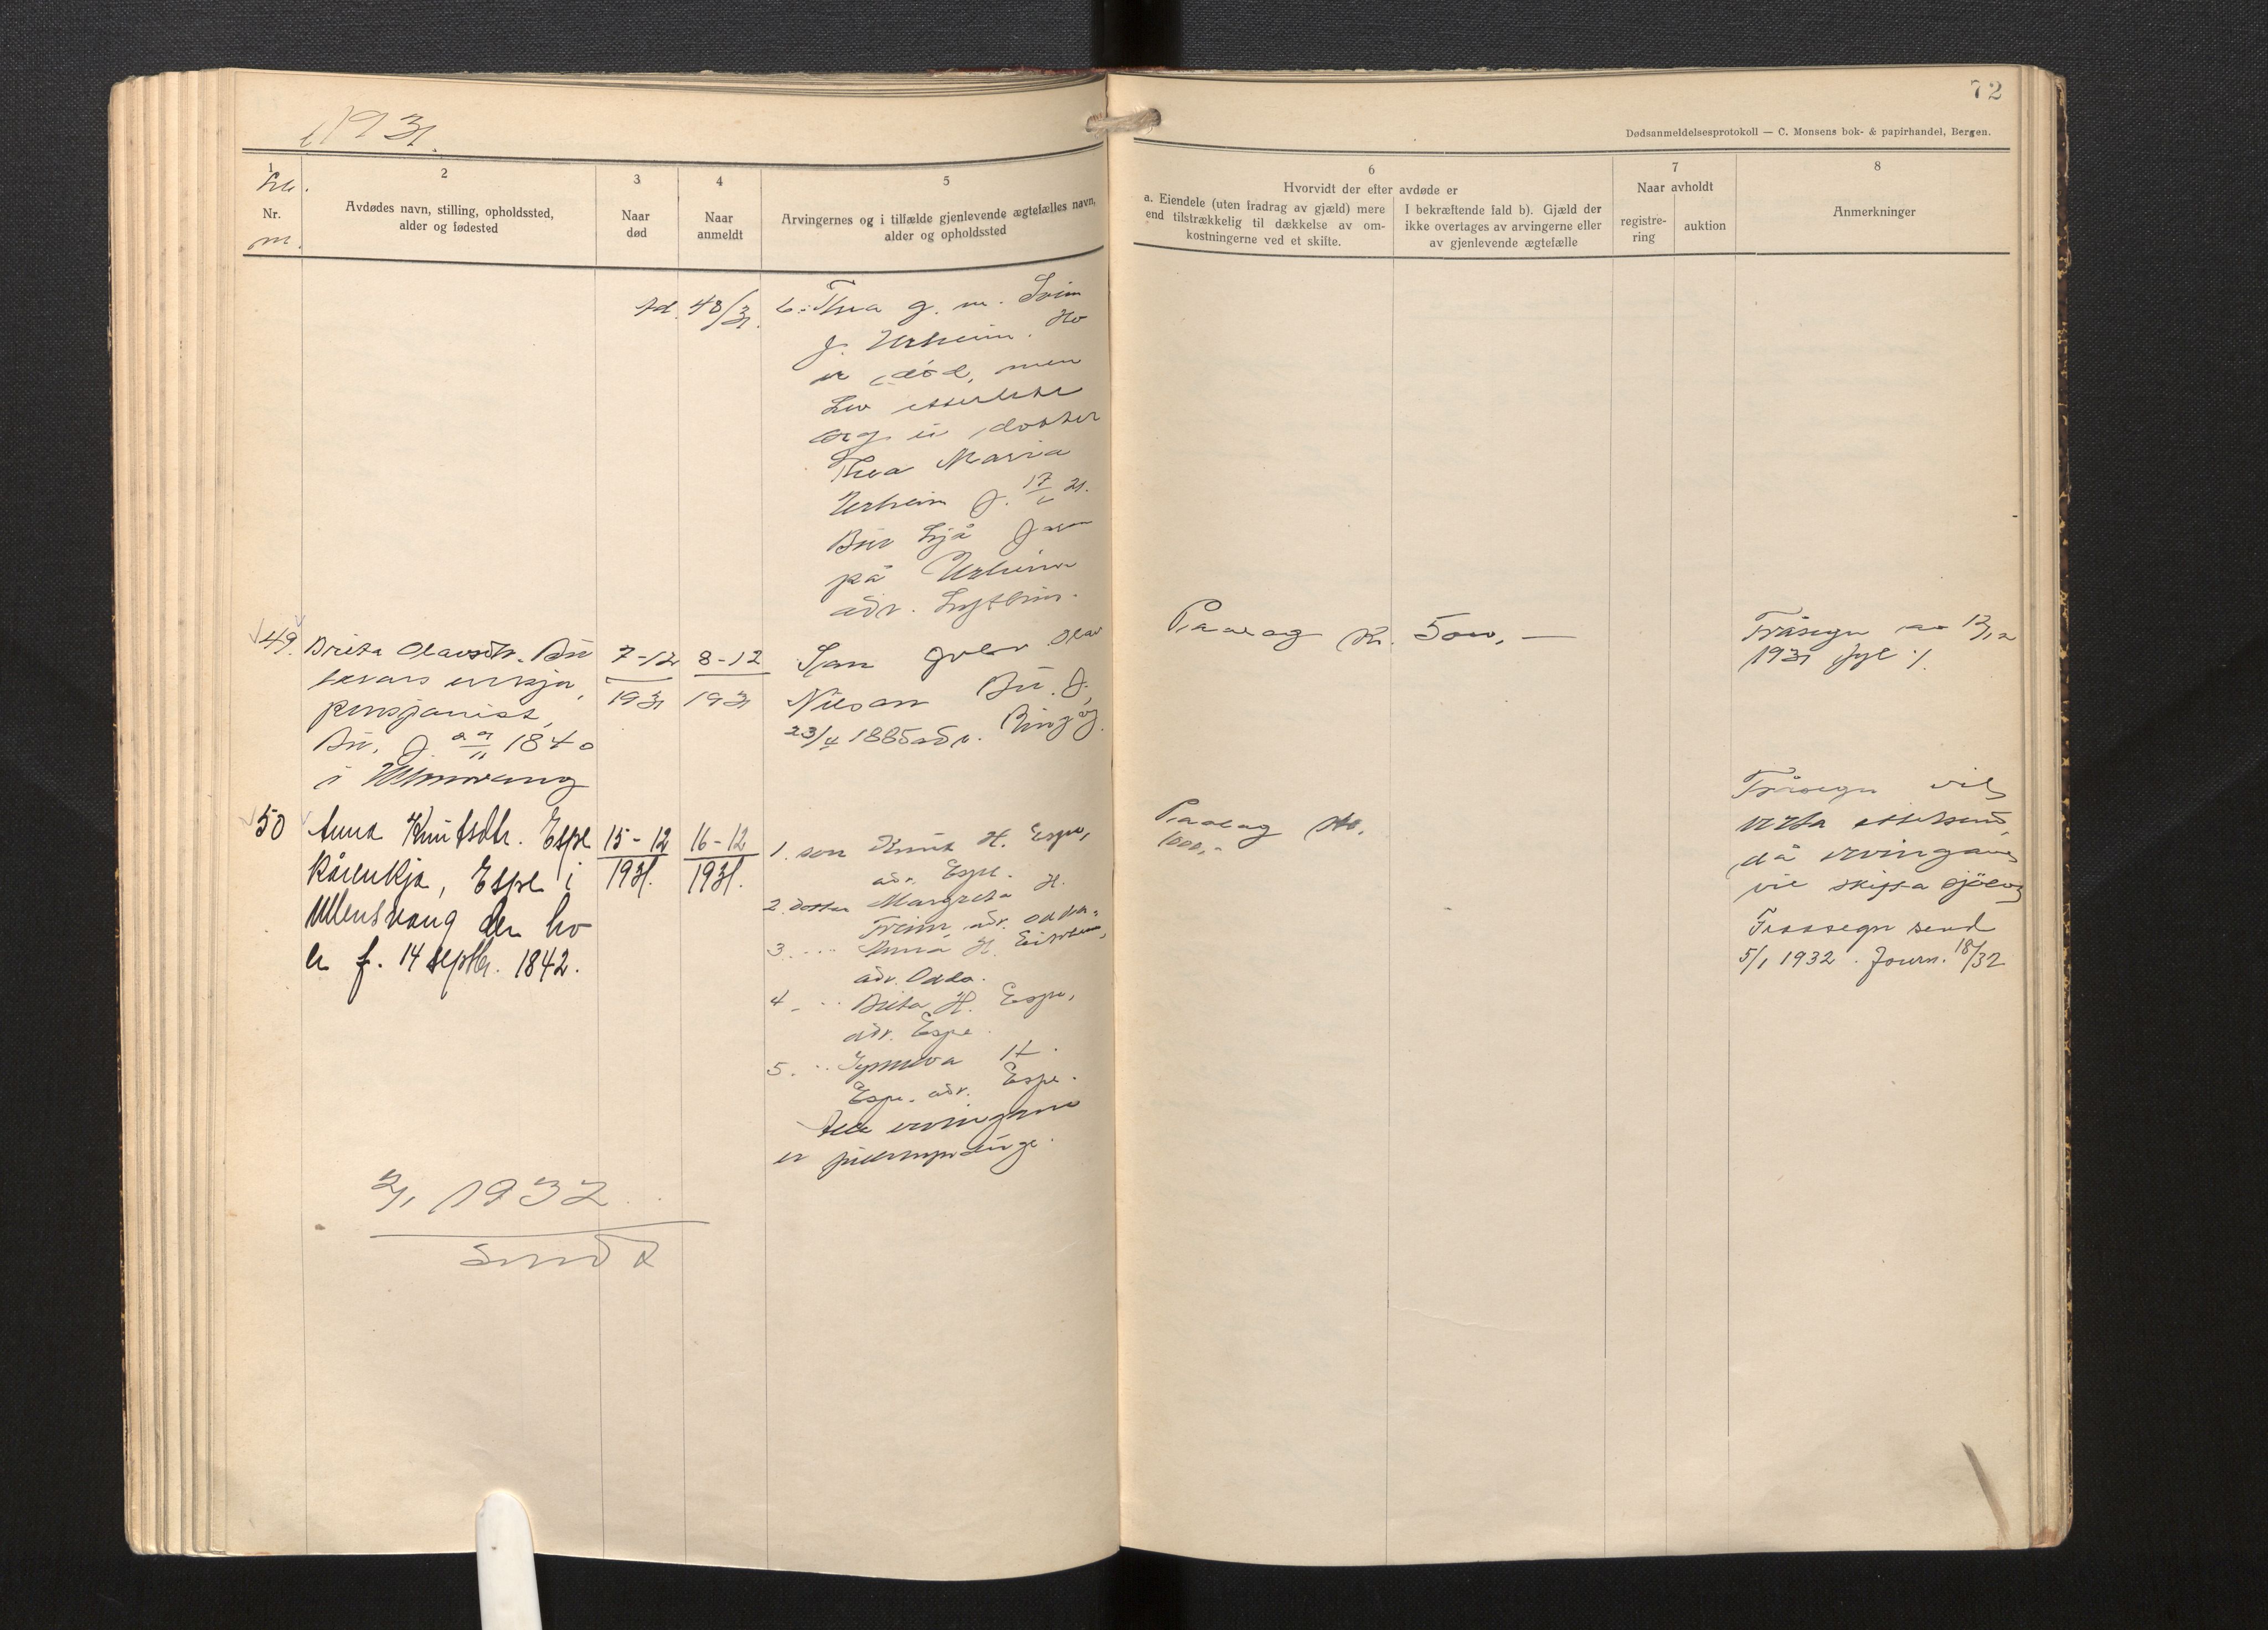 1931.
72
Dødsanmeldelsesprotokoll — C. Monsens bok- & papirhandel, Bergen.
1
Nr.
2
Avdødes navn, stilling, opholdssted,
alder og fødested
3
Naar
død
4
Naar
anmeldt
5
Arvingernes og i tilfælde gjenlevende ægtefælles navn,
alder og opholdssted
6
Hvorvidt der efter avdøde er
a. Eiendele (uten fradrag av gjæld) mere
end tilstrækkelig til dækkelse av om-
kostningerne ved et skifte.
I bekræftende fald b). Gjæld der
ikke overtages av arvingerne eller
av gjenlevende ægtefælle
7
Naar avholdt
registre-
ring
auktion
8
Anmerkninger
48/31. 6. Thea g. m. Svein
J. Urheim. Ho
er død, men
hev etterlate
seg ei dotter
Thea Maria
Urheim f. 17/6 21.
Bur hjå faren
på Urheim
adr. Lofthus.
49. Brita Olavsdtr. Bu
enkja,
pensjonist,
Bu, f. 1840
i Ullensvang
7-12
1931
8-12
1931
Son Olav
Nilsson Bu. f.
23/4 1885 adr. Ringøy.
Kr. 500, —
Fråsegn av 12/12
1931 fyl ./.
50 Anna Knutsdtr. Espe
kårenkja, Espe i
Ullensvang der ho
er f. 14 septbr. 1842.
15-12
1931.
16-12
1931.
1. son Knut H. Espe,
adr. Espe.
2. dotter Margreta H.
Freim, adr. Odda.
3. .. Anna H. Eitrheim,
adr. Odda.
4 - .. Brita H. Espe,
adr. Espe.
5. .. Synneva H.
Espe. adr. Espe.
Alle ervingane
er fullmyndige.
1000,-
Fråsegn vil
verta ettersend,
då ervingane
vil skifta sjølve
Fraasegn send
5/1 1932. Journ. 18/32
2/1 1932
Sendt